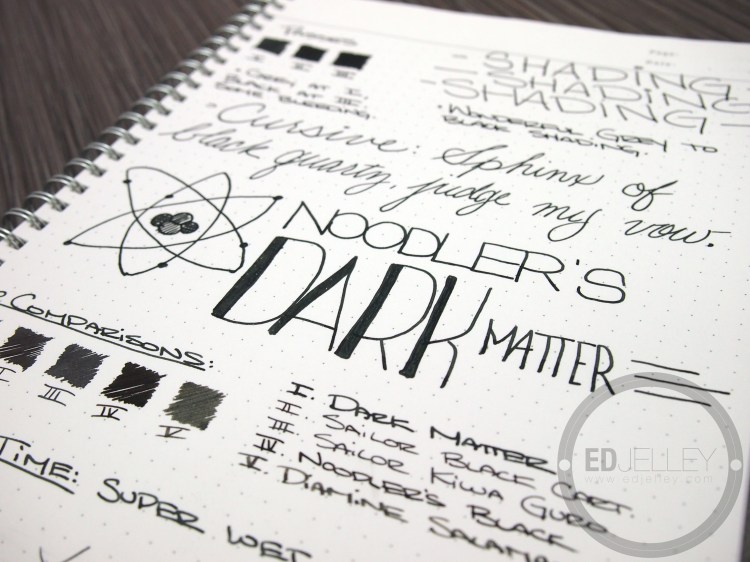 I II III
• GREY AT I.
BLACK AT III.
SOME BLEEDING.
— SHADING —
— SHADING —
— SHADING —
• WONDERFUL GREY TO
BLACK SHADING.
Cursive: Sphinx of
black quartz, judge my vow.
NOODLER'S
DARK MATTER
COMPARISONS:
I III IV V
I. DARK MATTER
II SAILOR BLACK CART.
III SAILOR KIWA GURO
IV NOODLER'S BLACK
V DIAMINE SALAMA
TIME: SUPER WET
EDJELLEY
www.edjelley.com